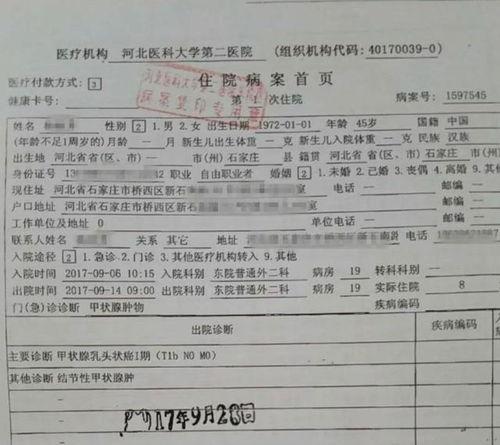 医疗机构 河北医科大学第二医院 (组织机构代码: 40170039-0)
医疗付款方式: 3 住院病案首页
健康卡号: 第 1 次住院 病案号: 1597545
姓名 性别 2 1.男 2.女 出生日期 1972-01-01 年龄 45岁 国籍 中国
(年龄不足1周岁的)年龄 一 月 新生儿出生体重 一 克 新生儿入院体重 一 克 民族 汉族
出生地 河北省省(区、市) 一 市(州)石家庄 县 籍贯 河北省省(区、市)石家庄 市(州)
身份证号 职业 自由职业者 婚姻 2 1.未婚 2.已婚 3.丧偶 4.离婚
现住址 河北省石家庄市桥西区新石 电话 一 邮编 一
户口地址 河北省石家庄市桥西区新石 邮编 一
工作单位及地址 0 单位电话 一 邮编 一
联系人姓名 关系 其它 地址 河北省石家庄市桥西区新 电话
入院途径 2 1.急诊 2.门诊 3.其他医疗机构转入 9.其他
入院时间 2017-09-06 10:15 入院科别 东院普通外二科 病房 19 转科科别
出院时间 2017-09-14 09:00 出院科别 东院普通外二科 病房 19 实际住院 8
门(急)诊诊断 甲状腺肿物
出院诊断 疾病编码
主要诊断 甲状腺乳头状癌I期 (T1b N0 M0)
其他诊断 结节性甲状腺肿
17年9月28日